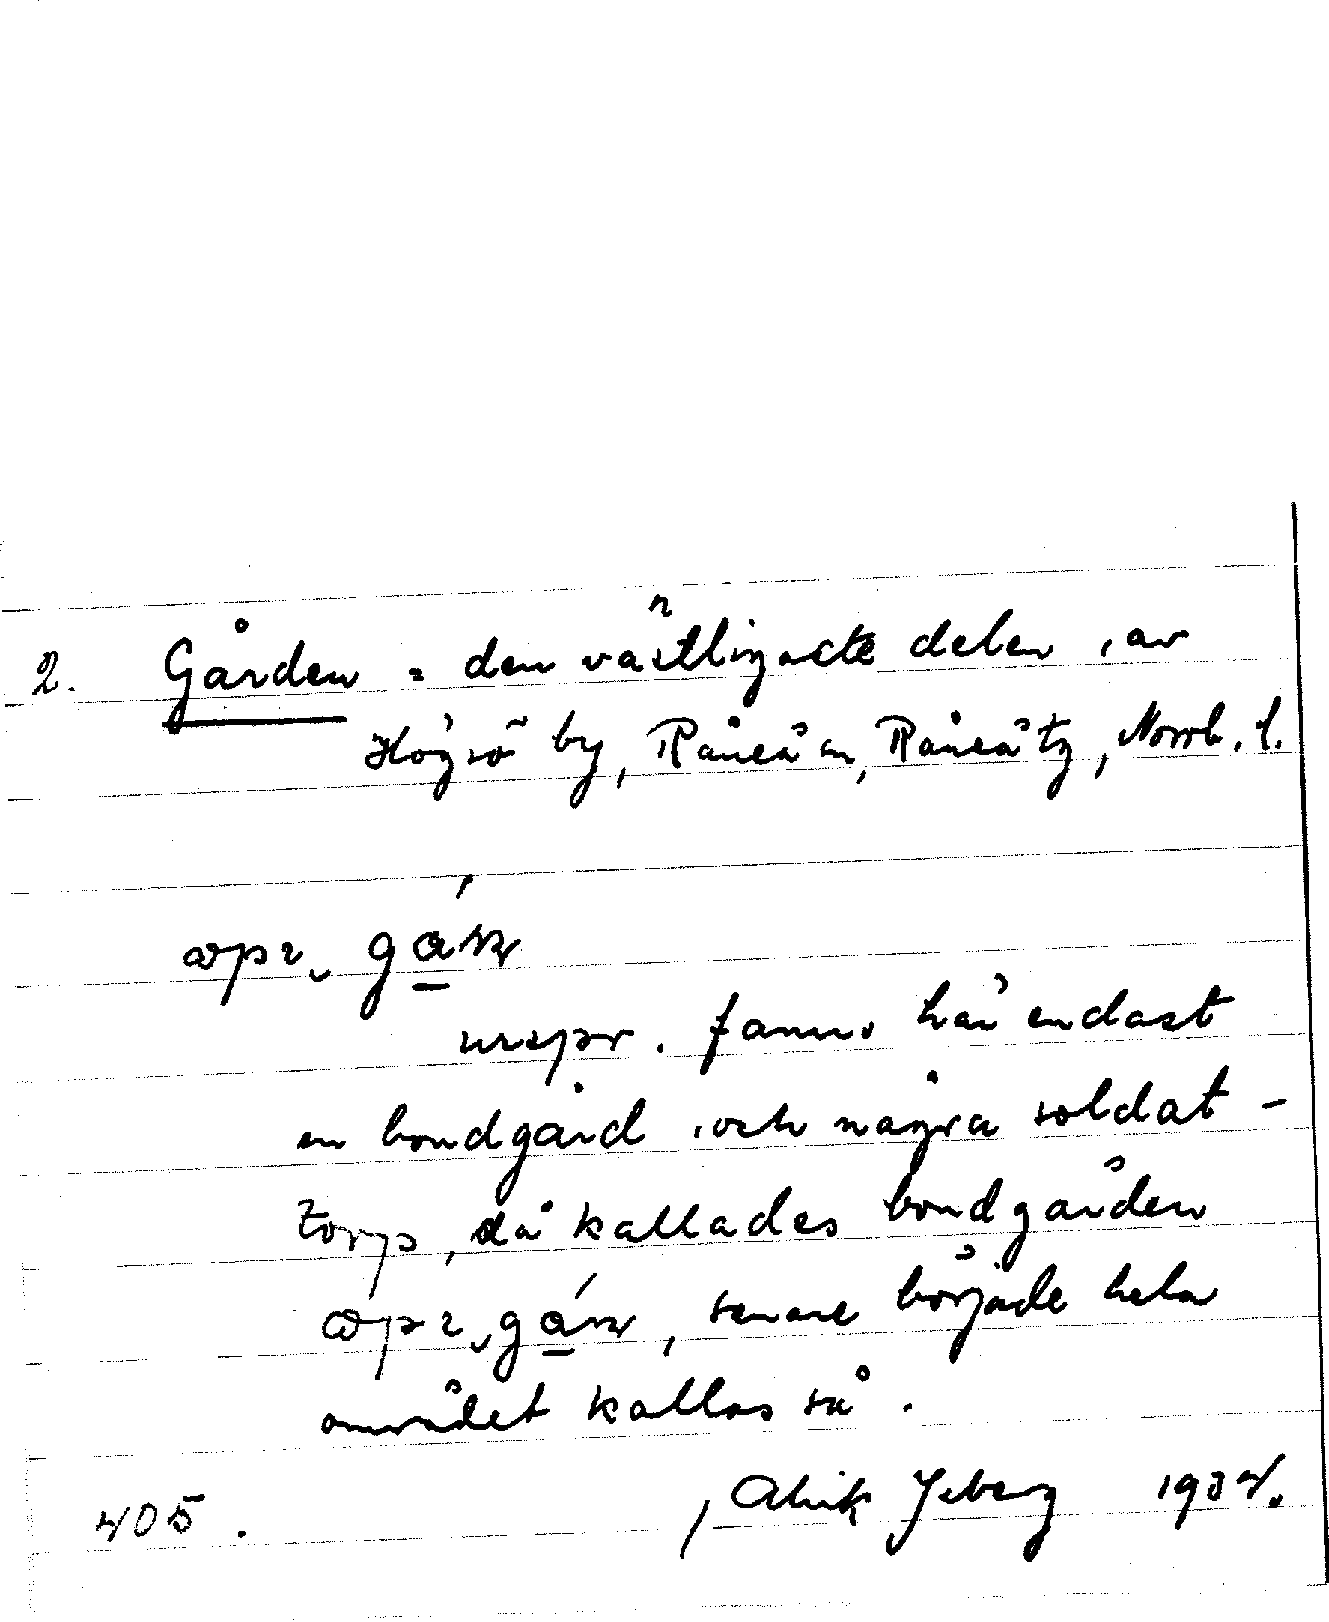 2. Gården = den västligaste delen av
Högsö by, Råneå sn, Råneå tg, Norrb. l.
urspr. fanns här endast
en bondgård och några soldat-
torp, då kallades bondgården
, senare började hela
området kallas så.
405. Alrik 1934.